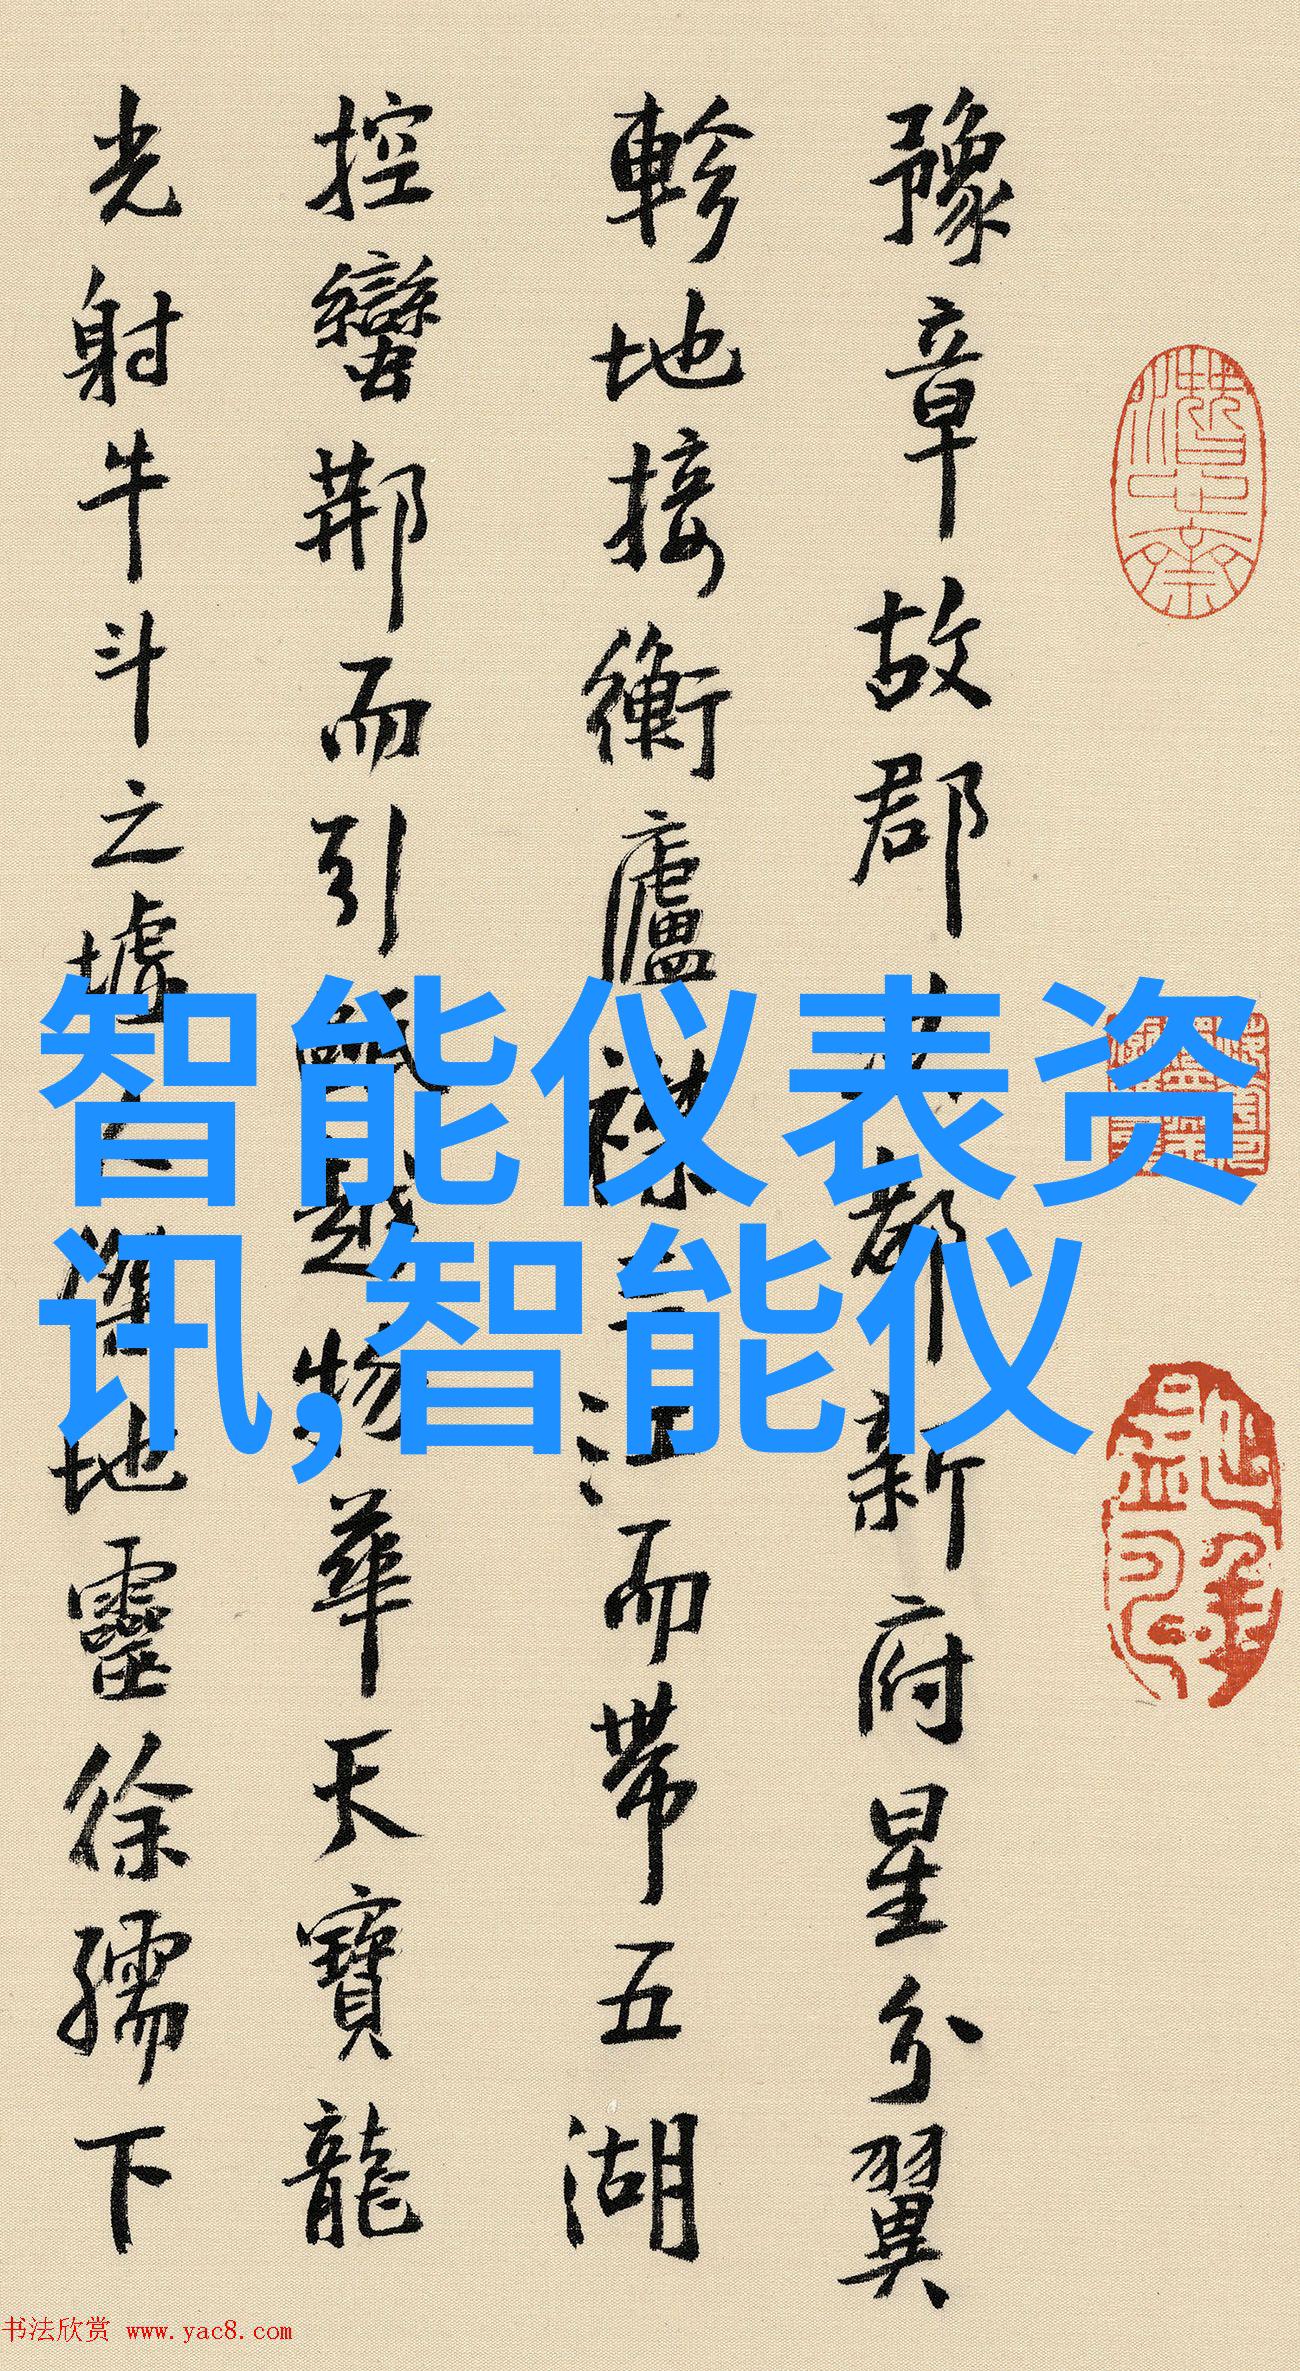 豫章故郡都新府星分翼
軫地接衡廬襟三江而帶五湖
控蠻荊而引甌越物華天寶龍
光射牛斗之墟人傑地靈徐孺下
智能仪表资
讯,智能仪
书法欣赏 www.yac8.com